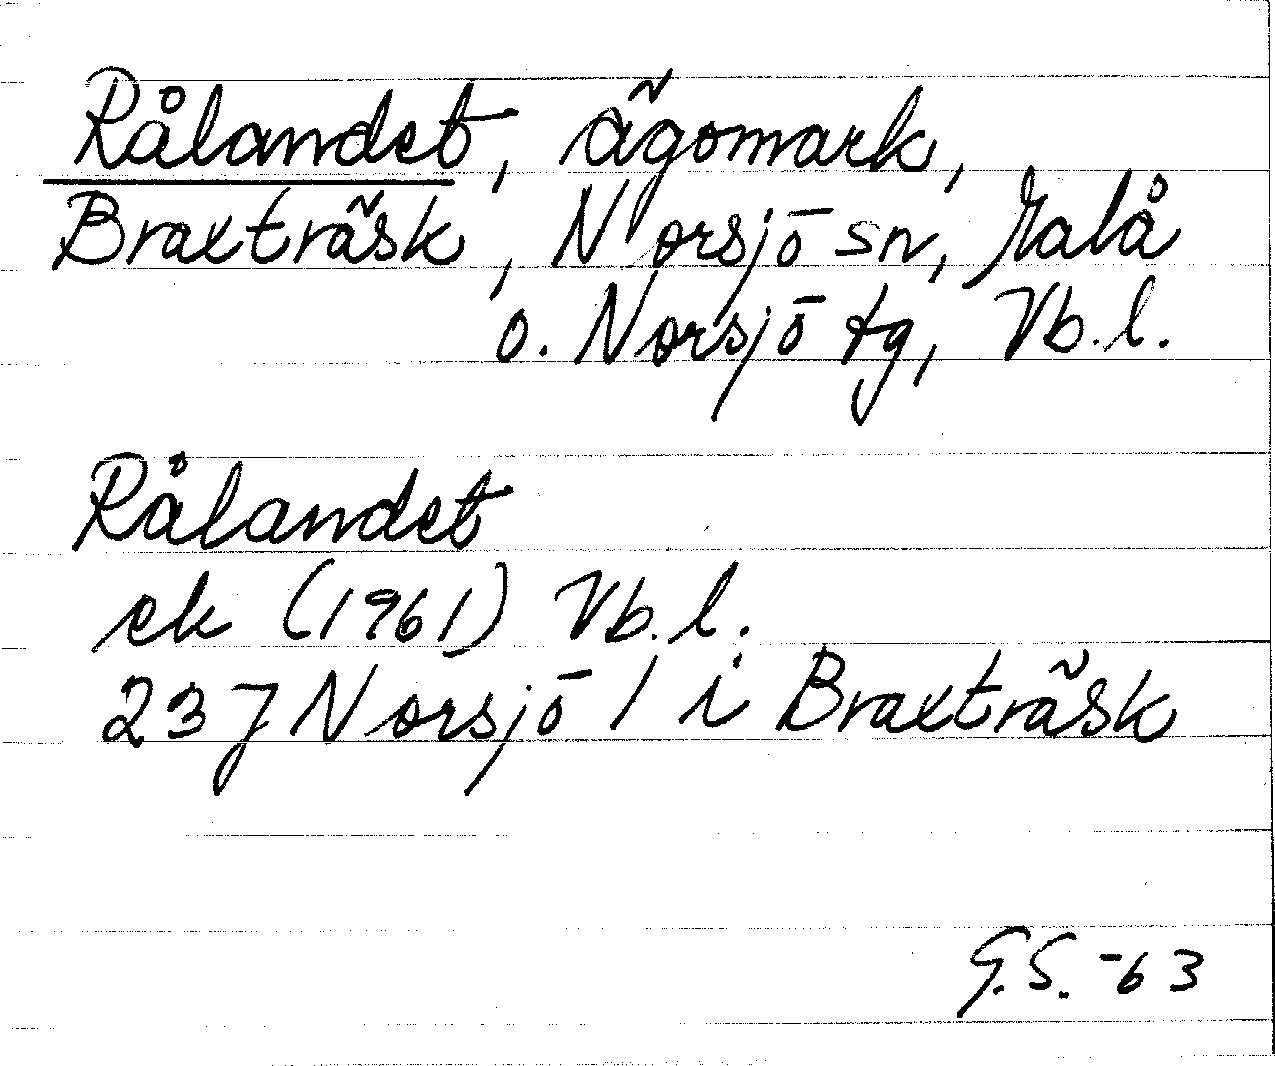 Rålandet, ägomark,
Braxträsk, Norsjö sn, Malå
o. Norsjö tg, Vb.l.
Rålandet
ek (1961) Vb.l.
23 J Norsjö 1 i Braxträsk
G.S. -63